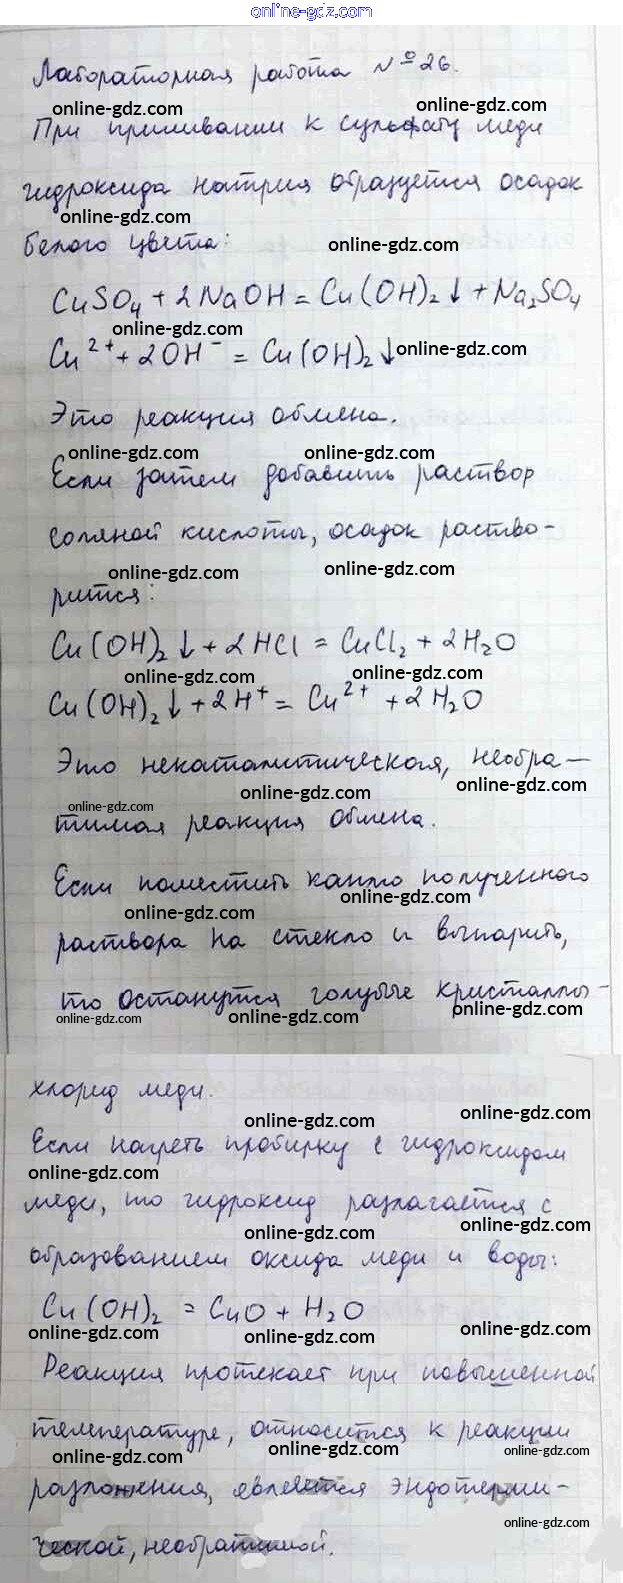 online-gdz.com
Лабораторная работа № 26.
online-gdz.com online-gdz.com
При приливании к сульфату меди
гидроксида натрия образуется осадок
online-gdz.com
белого цвета: online-gdz.com
CuSO₄ + 2NaOH = Cu(OH)₂↓ + Na₂SO₄
online-gdz.com online-gdz.com
Cu²⁺ + 2OH⁻ = Cu(OH)₂↓ online-gdz.com
Это реакция обмена.
online-gdz.com online-gdz.com
Если затем добавить раствор
соляной кислоты, осадок раство-
online-gdz.com online-gdz.com
рится:
Cu(OH)₂↓ + 2HCl = CuCl₂ + 2H₂O
online-gdz.com online-gdz.com
Cu(OH)₂↓ + 2H⁺ = Cu²⁺ + 2H₂O
Это некаталитическая, необра-
online-gdz.com online-gdz.com
online-gdz.com
тимая реакция обмена.
Если поместить каплю полученного
online-gdz.com online-gdz.com
раствора на стекло и выпарить,
то останутся голубые кристаллы-
online-gdz.com online-gdz.com online-gdz.com
хлорид меди.
online-gdz.com online-gdz.com
Если нагреть пробирку с гидроксидом
online-gdz.com
меди, то гидроксид разлагается с
online-gdz.com online-gdz.com
образованием оксида меди и воды:
Cu(OH)₂ = CuO + H₂O
online-gdz.com online-gdz.com online-gdz.com
Реакция протекает при повышенной
температуре, относится к реакции
online-gdz.com online-gdz.com online-gdz.com
разложения, является эндотерми-
online-gdz.com
ческой, необратимой.